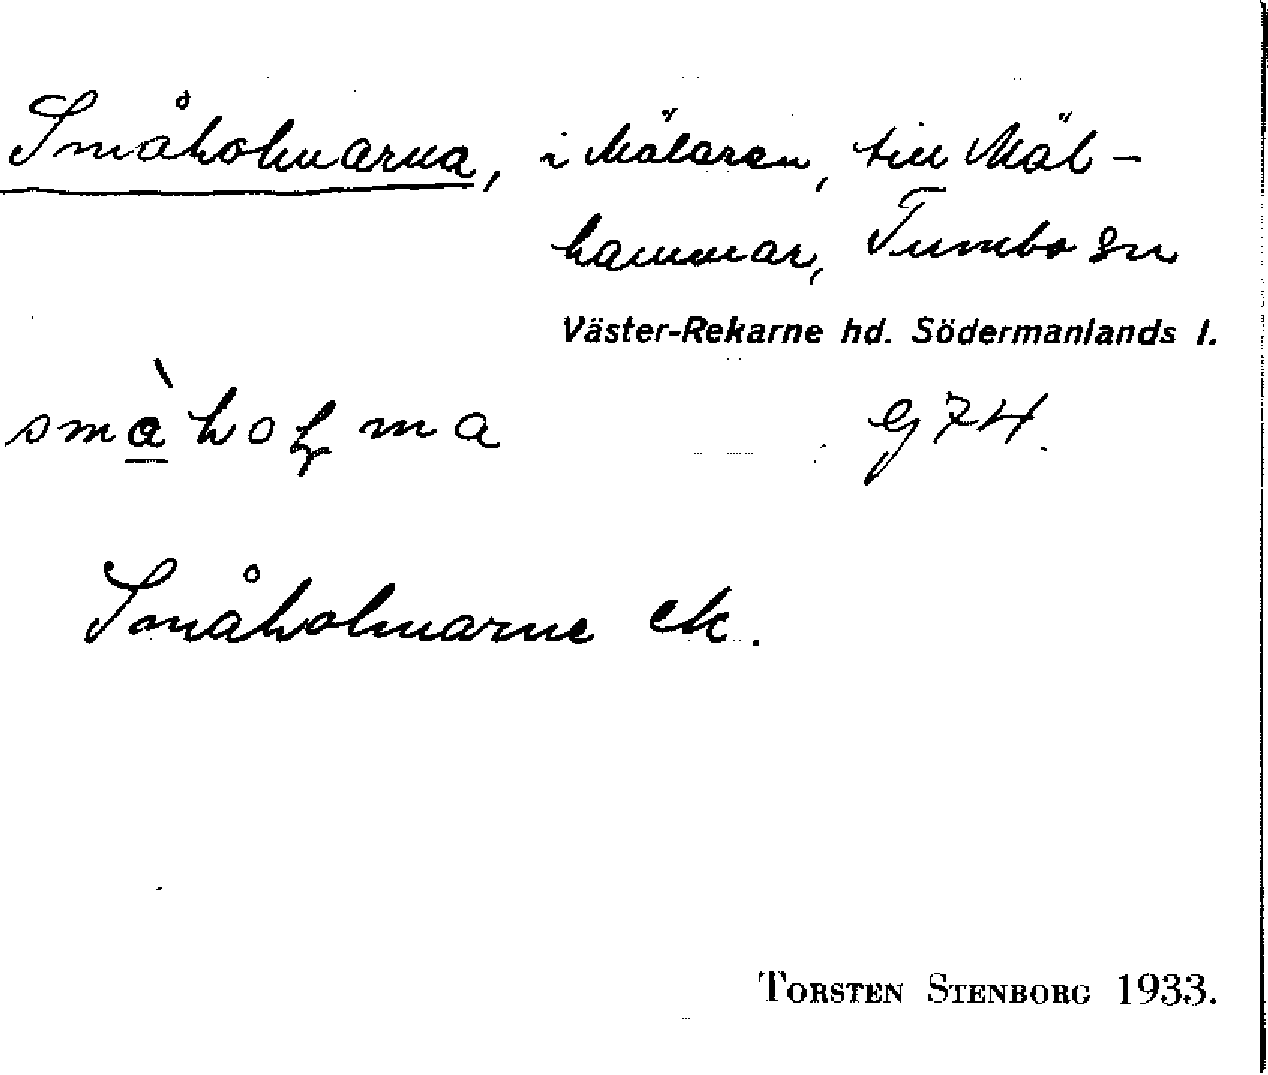 Småholmarna, i Mälaren, till Mäl-
hammar, Tumbo sn
Väster-Rekarne hd. Södermanlands l.
småholma
G 74.
Småholmarne ek.
TORSTEN STENBORG 1933.